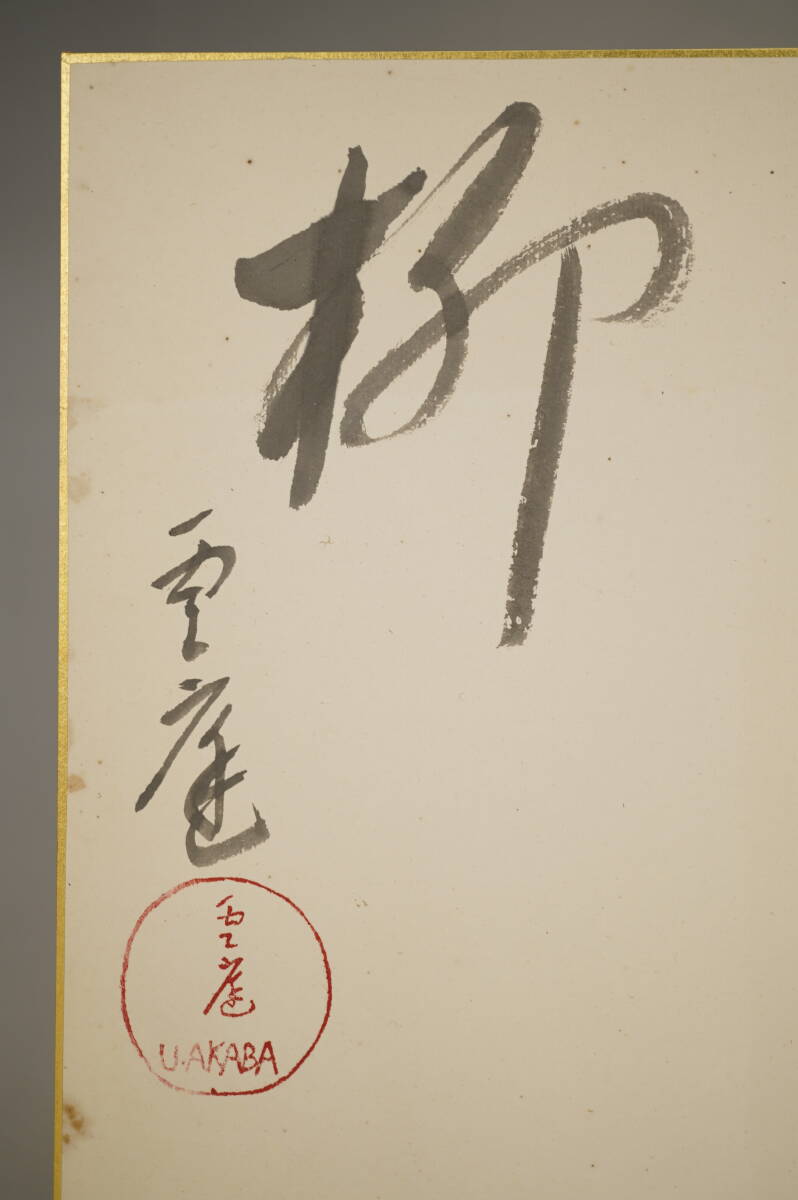 柳
雲庭
雲庭
U.AKABA